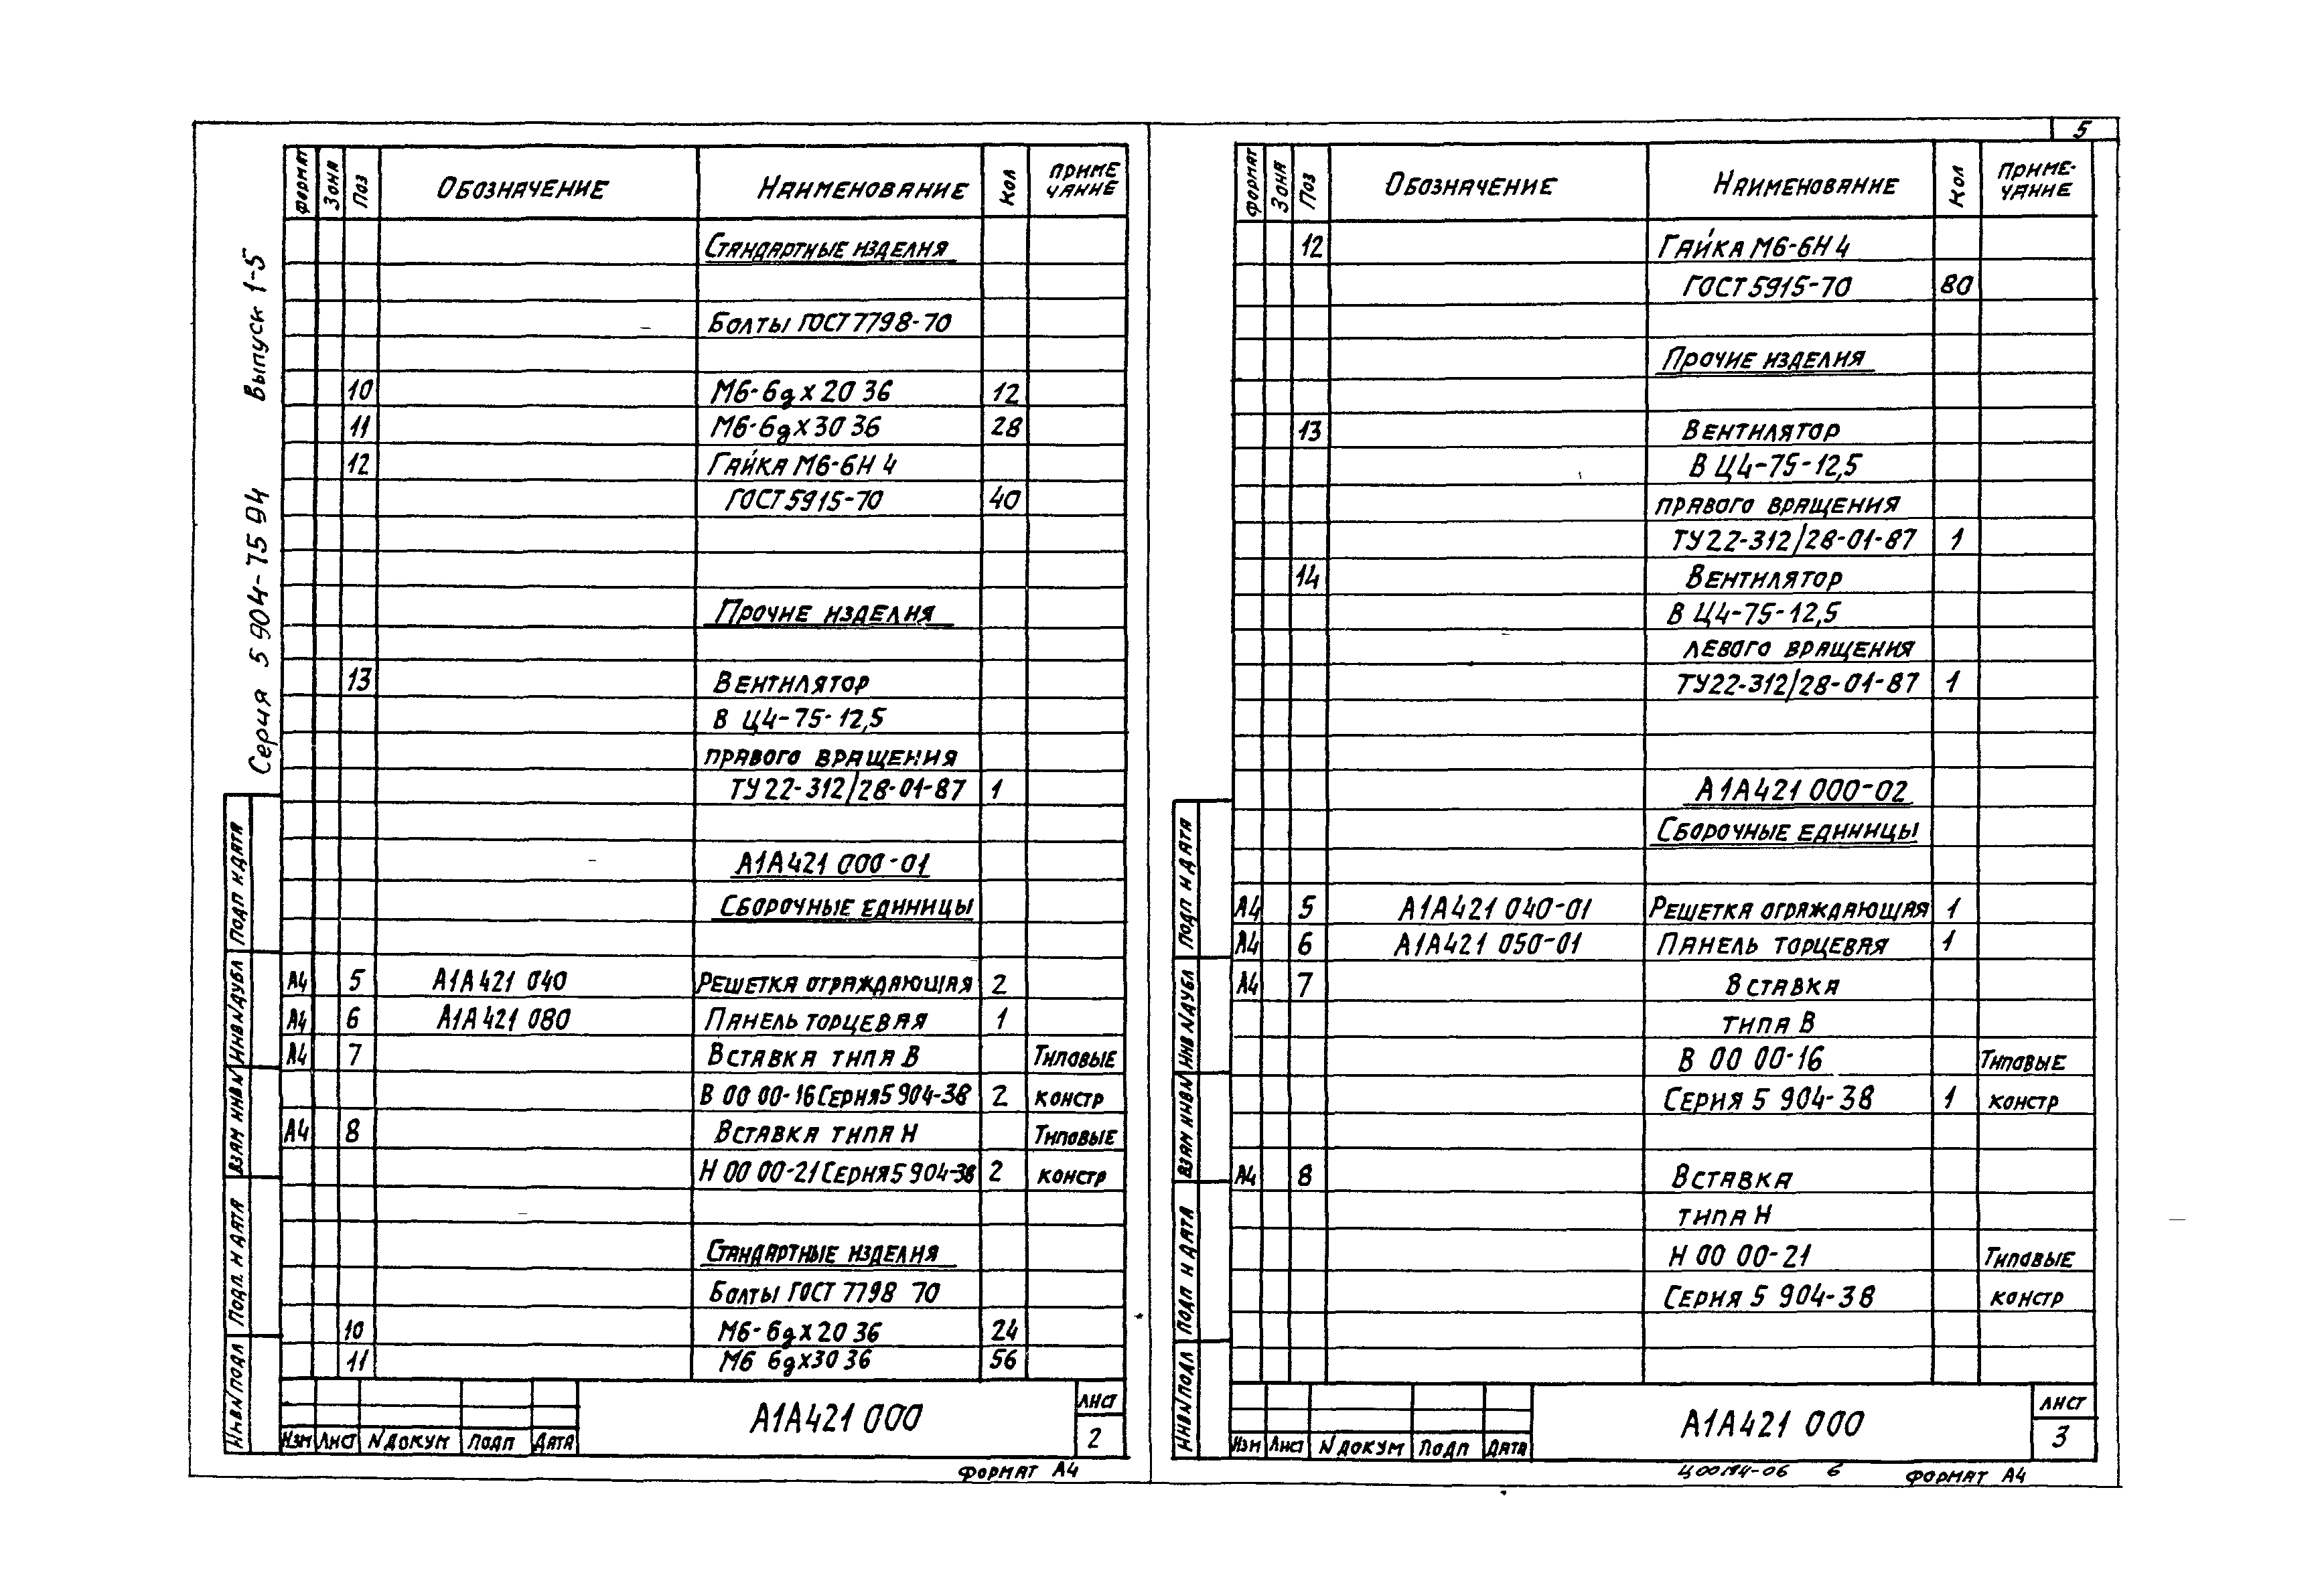 5
Серия 5 904-75 94 Выпуск 1-5
Формат Зона Поз Обозначение Наименование Кол Приме
чание
Стандартные изделия
Болты ГОСТ 7798-70
10 М6-6gх20 36 12
11 М6-6gх30 36 28
12 Гайка М6-6Н 4
ГОСТ 5915-70 40
Прочие изделия
13 Вентилятор
В Ц4-75-12,5
правого вращения
ТУ 22-312/28-01-87 1
А1А421 000-01
Сборочные единицы
А4 5 А1А421 040 Решетка ограждающая 2
А4 6 А1А421 080 Панель торцевая 1
А4 7 Вставка типа В Типовые
В 00 00-16 Серия 5 904-38 2 констр
А4 8 Вставка типа Н Типовые
Н 00 00-21 Серия 5 904-38 2 констр
Стандартные изделия
Болты ГОСТ 7798 70
10 М6-6gх20 36 24
11 М6 6gх30 36 56
Подп и дата
Инв№дубл
Взам инв№
Подп. и дата
Инв№подл
Изм Лист №докум Подп Дата
А1А421 000
Лист
2
Формат А4
Формат Зона Поз Обозначение Наименование Кол Приме-
чание
12 Гайка М6-6Н 4
ГОСТ 5915-70 80
Прочие изделия
13 Вентилятор
В Ц4-75-12,5
правого вращения
ТУ 22-312/28-01-87 1
14 Вентилятор
В Ц4-75-12,5
левого вращения
ТУ 22-312/28-01-87 1
А1А421 000-02
Сборочные единицы
А4 5 А1А421 040-01 Решетка ограждающая 1
А4 6 А1А421 050-01 Панель торцевая 1
А4 7 Вставка
типа В
В 00 00-16 Типовые
Серия 5 904-38 1 констр
А4 8 Вставка
типа Н
Н 00 00-21 Типовые
Серия 5 904-38 констр
Подп и дата
Инв№дубл
Взам инв№
Подп и дата
Инв№подл
Изм Лист №докум Подп Дата
А1А421 000
Лист
3
6 Формат А4